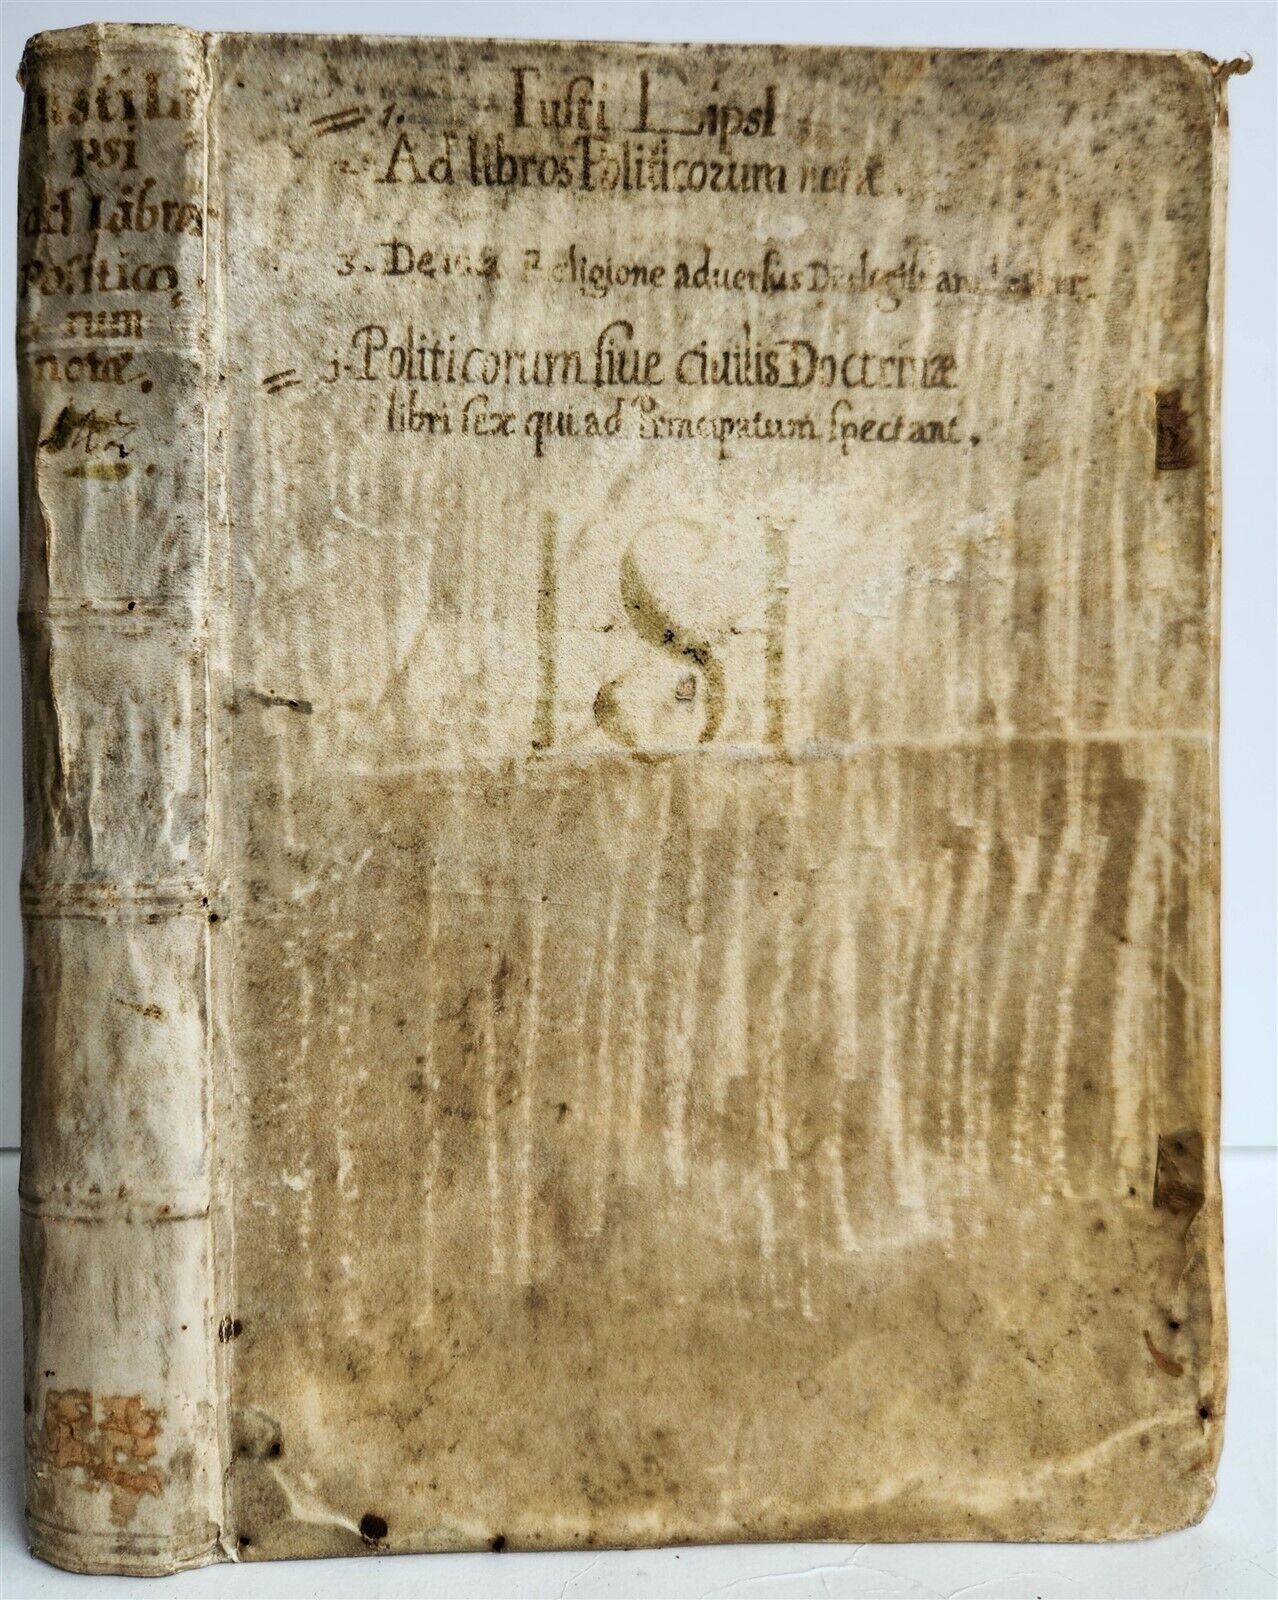 usti Li
psi
ad Libros
Politico,
rum
notæ.
1. Iusti Lipsi
2. Ad libros Politicorum notæ.
3. De una Religione adversus Dialogistam
3. Politicorum sive civilis Doctrinæ
libri sex qui ad Principatum spectant.
ISI